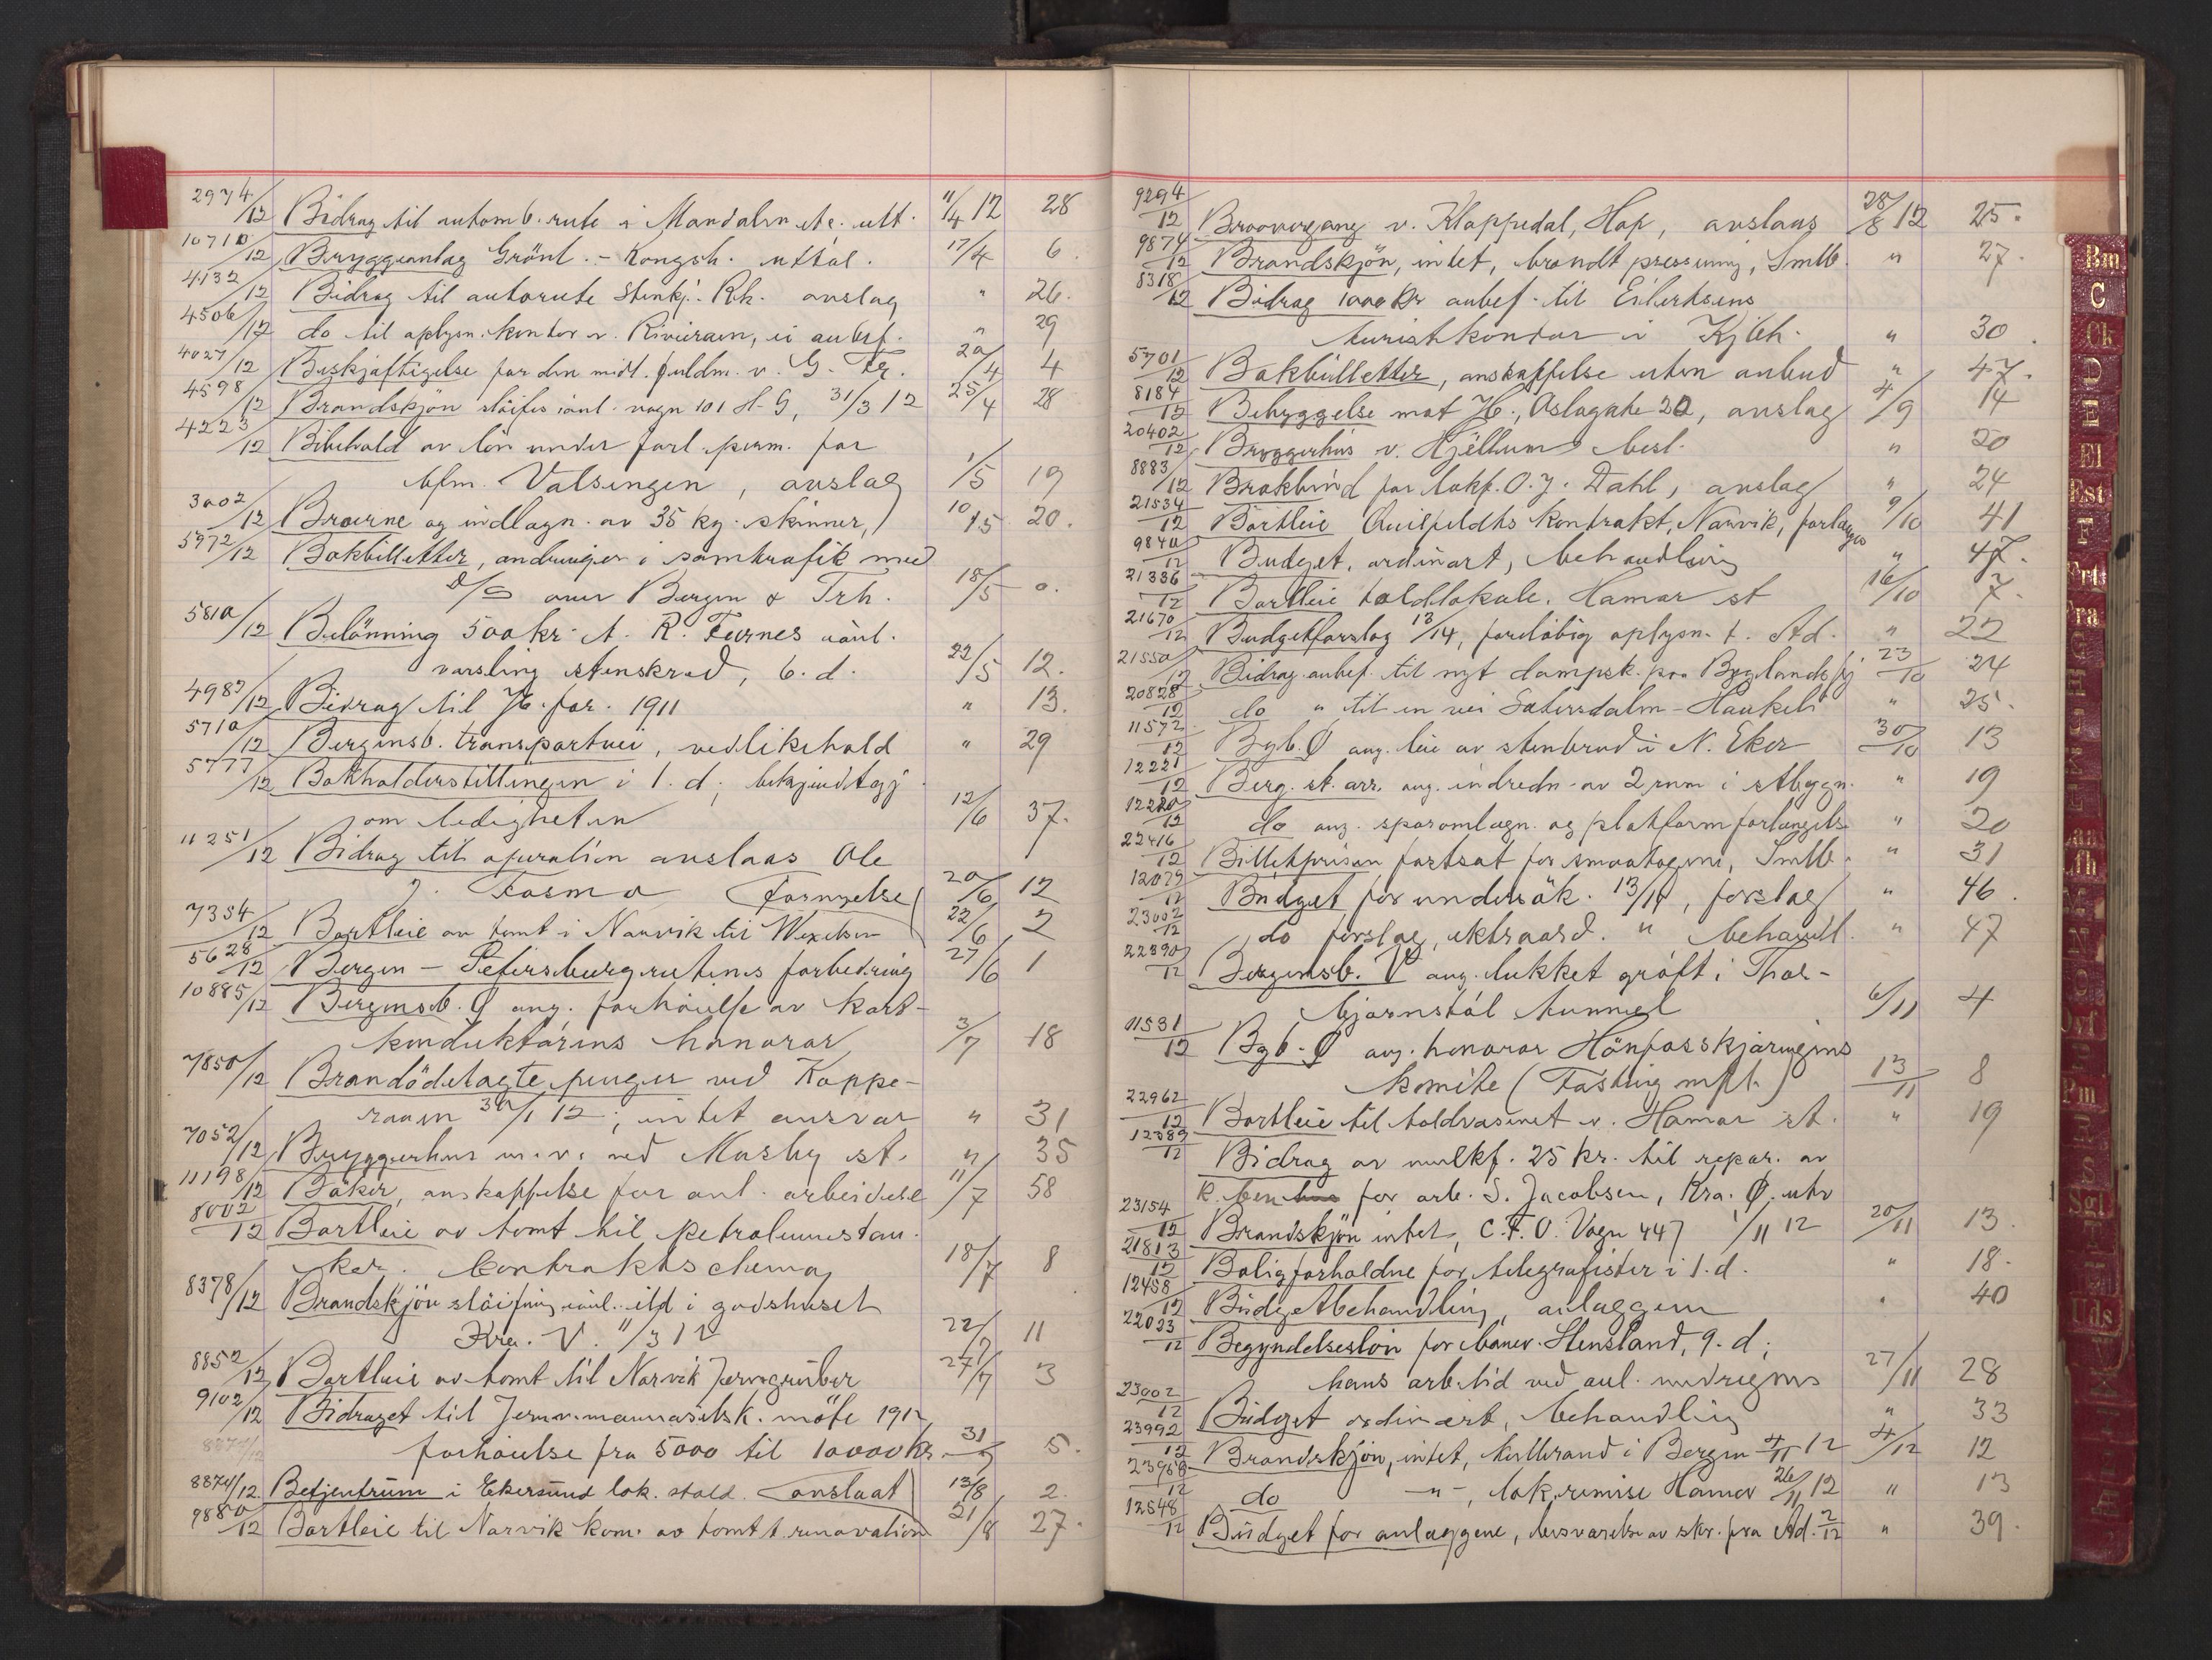 2974/12 Bidrag til automb. rute i Mandalen etc. utt. 11/4 12 28
10710/12 Bryggeanlag Grönl. - Kongsh. uttal. 17/4 6.
4132/12 Bidrag til autorute Stenkj. - Rk. avslag " 26.
4506/12 do til oplysn. kontor v. Rivieraen, ei anbef. " 29
4027/12 Beskjæftigelse for den midl. fuldm. v. G. Fr. 20/4 4
4598/12 Brandskjön slöifes i anl. vogn 101 H-G, 31/3 12 25/4 28
4223/12 Bibehold av lön under forl. perm. for
bfm. Valsengen, avslag 1/5 19
3002/12 Broerne og indlagn. av 35 kg. skinner, 10/5 20.
5972/12 Bokbilletter, endringer i samtrafik med
D/S over Bergen & Trh. 18/5 0.
5810/12 Belönning 500 kr. t. R. Furnes i anl.
varsling stenskred, 6. d. 22/5 12.
4987/12 Bidrag til H. for. 1911 " 13.
5710/12 Bergensb. transportvei, vedlikehold " 29
5777/12 Bokholderstillingen i 1. d; bekjendtgj.
om ledigheten 12/6 37.
11251/12 Bidrag til operation avslaas Ole
J. Fosmo (Fornyelse) 20/6 12
7354/12 Bortleie av tomt i Narvik til Wexelsen 22/6 2
5628/12 Bergen - Petersburgrutens forbedring 27/6 1
10885/12 Bergensb. Ø ang. forhöielse av kart-
konduktörens honorar 3/7 18
7850/12 Brandödelagte penger ved Koppe-
raaen 30/1 12; intet ansvar " 31
7052/12 Bryggerhus m. v. ved Mosby st. " 35
11198/12 Böker, anskaffelse for anl. arbeidere 11/7 58
8002/12 Bortleie av tomt til petroleumstan-
ker. Contraktschema 18/7 8
8378/12 Brandskjön slöifning i anl. ild i godshuset
Kra. V. 11/3 12 22/7 11
8852/12 Bortleie av tomt til Narvik Jerngruber 27/7 3
9102/12 Bidraget til Jernv.mannaselsk. möte 1912
8874/12 forhöielse fra 5000 til 10000 kr. 31/7 5.
8874/12 Betjentrum i Ekersund lok. stald. (avslaat) 13/8 2.
9880/12 Bortleie til Narvik kom. av tomt t. renovation 21/8 27.
9294/12 Broovergang v. Kloppedal, Hop, avslaas 28/8 12 25.
9874/12 Brandskjön, intet, brændt presenning, Smlb. " 27.
8318/12 Bidrag 1000 kr anbef. til Eilertsens
turistkontor i Kjbh. " 30.
5701/12 Bokbilletter, anskaffelse uten anbud " 47.
8184/12 Bebyggelse mot H., Oslogate 22, avslag 4/9 14
20402/12 Bryggerhus v. Hjellum besl. " 20
8883/12 Brokbind for lokf. O. J. Dahl, avslag " 24
21534/12 Bortleie Quilfeldts kontrakt, Narvik, forlænges 9/10 41
9840/12 Budget, ordinært, behandling " 47.
21336/12 Bortleie toldlokale. Hamar st 16/10 7.
21670/12 Budgetforslag 13/14, foreløbig oplysn. t. Ad. " 22
21550/12 Bidrag anbef. til nyt dampsk. paa Byglandsfj 23/10 24
20828/12 do " til en vei Sætersdalen - Haukeli " 25.
11572/12 Bgb. Ø ang. leie av stenbrud i N. Eker 30/10 13
12221/12 Berg. st. arr. ang. indredn. av 2 rum i stbygn. " 19
12220/12 do ang. sporomlægn. og platformforlængelse " 20
22416/12 Billetprisen fortsat for smaatogene, Smlb. " 31
12079/12 Budget for undersök. 13/14, forslag " 46.
23002/12 do forslag, ekstraord. " behandl. " 47
22390/12 Bergensb. V ang. lukket gröft i Thor-
bjørnstöl tunnel 6/11 4
11531/12 Bgb. Ø ang. honorar Hönefosskjæringens
komite (Fasting m.fl.) 13/11 8
22962/12 Bortleie til toldvæsenet v. Hamar st. " 19
12389/12 Bidrag av mulkf. 25 kr. til repar. av
k. ben for arb. S. Jacobsen, Kra. Ø. utv
23154/12 Brandskjön intet, C.F.O. Vogn 447 1/11 12 20/11 13.
21813/12 Boligforholdene for telegrafister i 1. d. " 18.
12458/12 Budgetbehandling, anlæggene " 40
22023/12 Begyndelseslön for baner. Stensland, 9. d;
hans arb.tid ved anl. medregnes 27/11 28
23002/12 Budget ordinært, behandling " 33
23992/12 Brandskjön, intet, kulbrand i Bergen 4/11 12 4/12 12
23968/12 do -"-, lok.remise Hamar 26/11 12 " 13
12548/12 Budget for anlæggene, besvarelse av skr. fra Ad. 2/12 " 39.
Bm
C
Ck
D
E
El
Est
F
Frt
Fra
G
H
N
O
P
Pm
R
S
Sgl
T
Uds
V